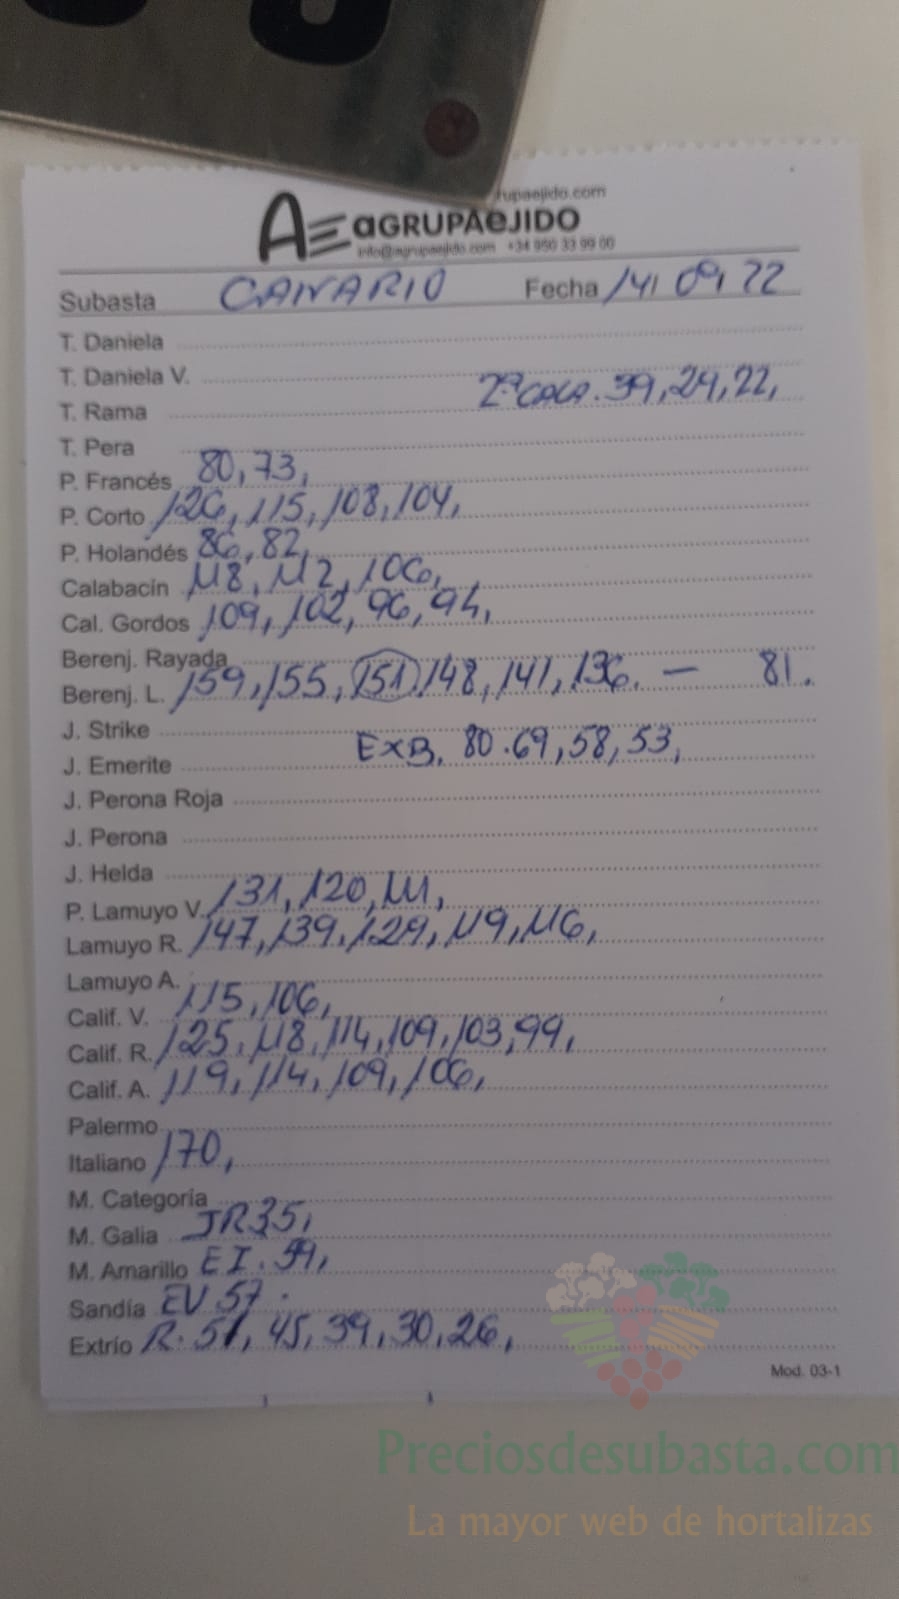 rupaejido.com
AE aGRUPAeJIDO
info@agrupaejido.com +34 950 33 99 00
Subasta CANARIO Fecha 14/09/22
T. Daniela
T. Daniela V.
2ª CALA. 39, 24, 22,
T. Rama
T. Pera
P. Francés 80, 73,
P. Corto 126, 115, 108, 104,
P. Holandés 86, 82,
Calabacín 118, 112, 106,
Cal. Gordos 109, 102, 96, 94,
Berenj. Rayada
Berenj. L. 159, 155, 151, 148, 141, 136. — 81.
J. Strike
EXB. 80. 69, 58, 53,
J. Emerite
J. Perona Roja
J. Perona
J. Helda
P. Lamuyo V. 131, 120, 111,
Lamuyo R. 147, 139, 129, 119, 116,
Lamuyo A.
Calif. V. 115, 106,
Calif. R. 125, 118, 114, 109, 103, 99,
Calif. A. 119, 114, 109, 106,
Palermo
Italiano 170,
M. Categoría
M. Galia JR 35,
M. Amarillo EI. 59,
Sandía EV 57.
Extrío R. 51, 45, 39, 30, 26,
Mod. 03-1
Preciosdesubasta.com
La mayor web de hortalizas